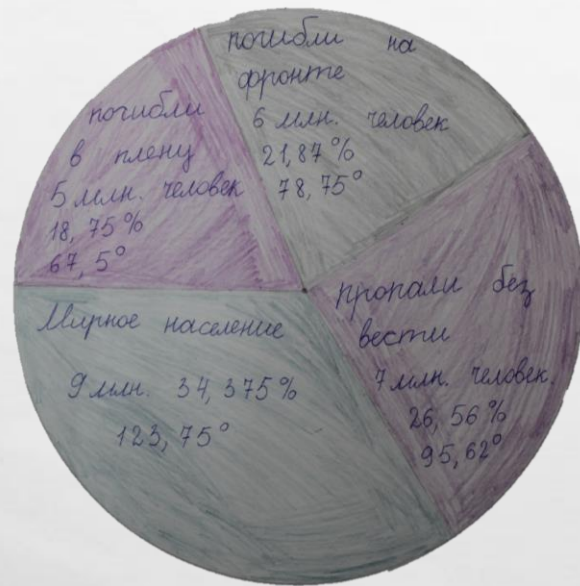 погибли на
фронте
6 млн. человек
21,87%
78,75°
погибли
в плену
5 млн. человек
18,75%
67,5°
пропали без
вести
7 млн. человек.
26,56%
95,62°
Мирное население
9 млн. 34,375%
123,75°